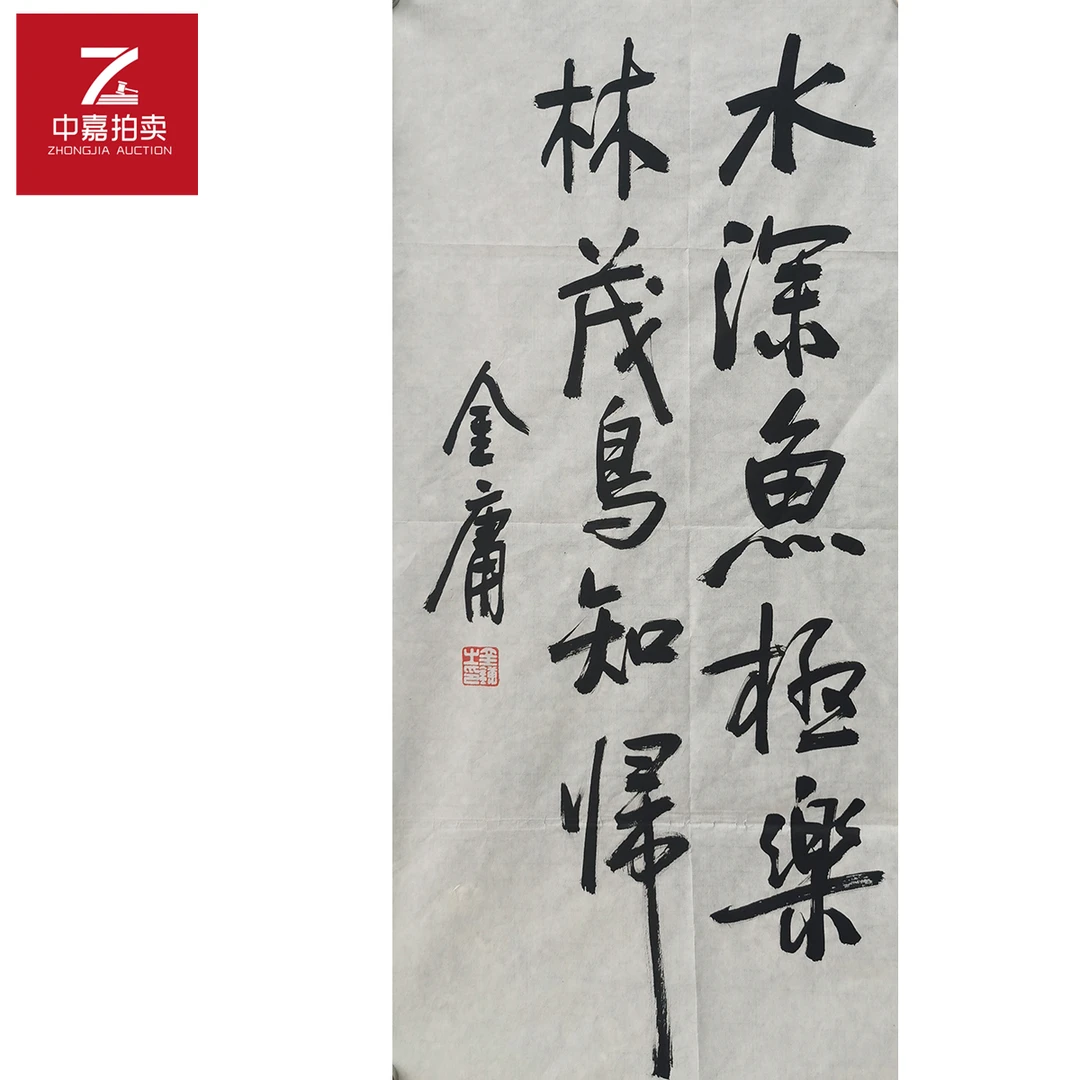 中嘉拍卖
ZHONGJIA AUCTION
水深魚極樂
林茂鳥知帰
金庸